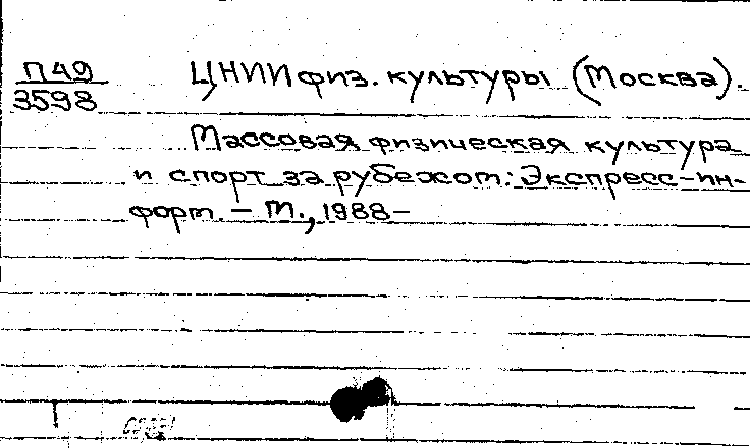 П49
3598
ЦНИИ физ. культуры (Москва).
Массовая физическая культура
и спорт за рубежом: Экспресс-ин-
форм. – М., 1988–